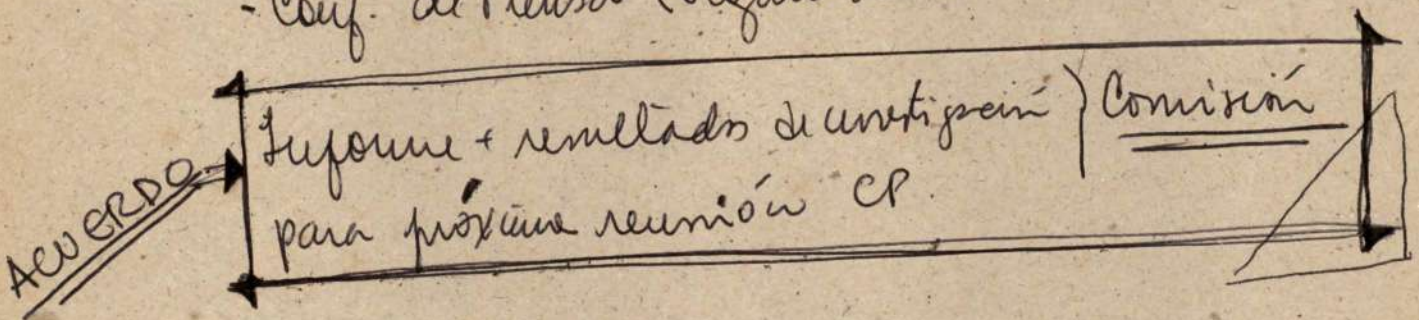 - Conf. de Prensa (
ACUERDO
Informe + resultados de investigación ) Comisión
para próxima reunión CP.